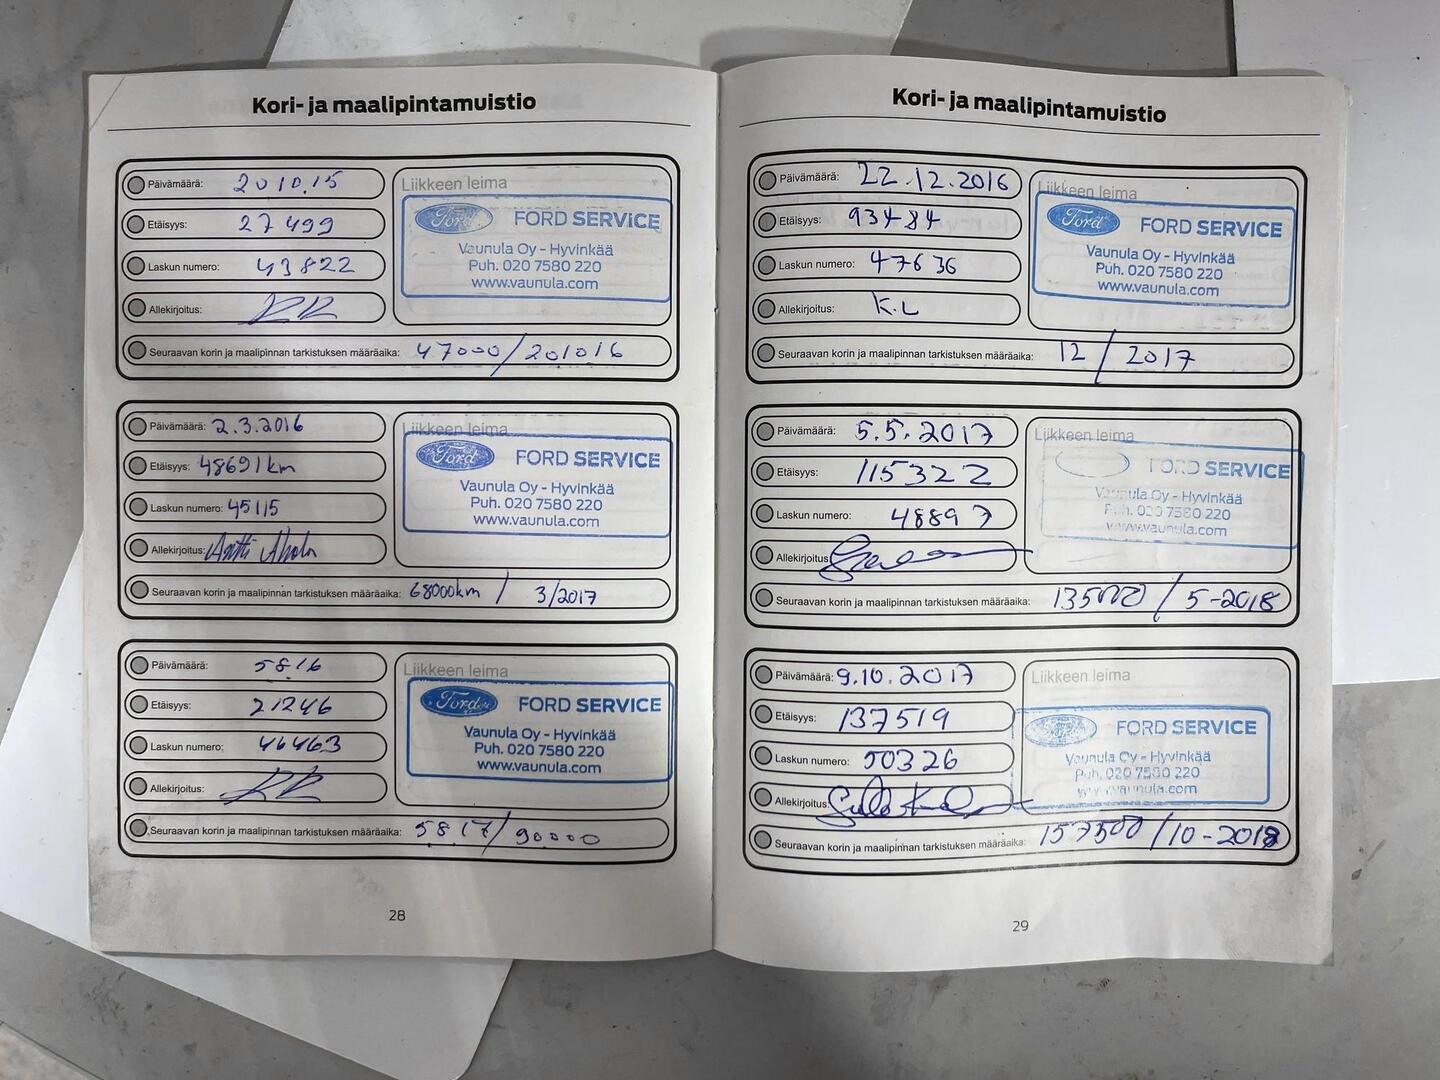 Kori- ja maalipintamuistio
Päivämäärä: 201015
Etäisyys: 27499
Laskun numero: 43822
Allekirjoitus:
Liikkeen leima
Ford FORD SERVICE
Vaunula Oy - Hyvinkää
Puh. 020 7580 220
www.vaunula.com
Seuraavan korin ja maalipinnan tarkistuksen määräaika: 47000/201016
Päivämäärä: 2.3.2016
Etäisyys: 48691km
Laskun numero: 45115
Allekirjoitus:
Liikkeen leima
Ford FORD SERVICE
Vaunula Oy - Hyvinkää
Puh. 020 7580 220
www.vaunula.com
Seuraavan korin ja maalipinnan tarkistuksen määräaika: 68000km / 3/2017
Päivämäärä: 5.8.16
Etäisyys: 71246
Laskun numero: 46463
Allekirjoitus:
Liikkeen leima
Ford FORD SERVICE
Vaunula Oy - Hyvinkää
Puh. 020 7580 220
www.vaunula.com
Seuraavan korin ja maalipinnan tarkistuksen määräaika: 5.8.17/90000
28
Kori- ja maalipintamuistio
Päivämäärä: 22.12.2016
Etäisyys: 93484
Laskun numero: 47636
Allekirjoitus: K.L
Liikkeen leima
Ford FORD SERVICE
Vaunula Oy - Hyvinkää
Puh. 020 7580 220
www.vaunula.com
Seuraavan korin ja maalipinnan tarkistuksen määräaika: 12 / 2017
Päivämäärä: 5.5.2017
Etäisyys: 115322
Laskun numero: 48897
Allekirjoitus:
Liikkeen leima
FORD SERVICE
Vaunula Oy - Hyvinkää
Puh. 020 7580 220
www.vaunula.com
Seuraavan korin ja maalipinnan tarkistuksen määräaika: 135000 / 5-2018
Päivämäärä: 9.10.2017
Etäisyys: 137519
Laskun numero: 50326
Allekirjoitus:
Liikkeen leima
FORD SERVICE
Vaunula Oy - Hyvinkää
Puh. 020 7580 220
www.vaunula.com
Seuraavan korin ja maalipinnan tarkistuksen määräaika: 157500 /10-2018
29